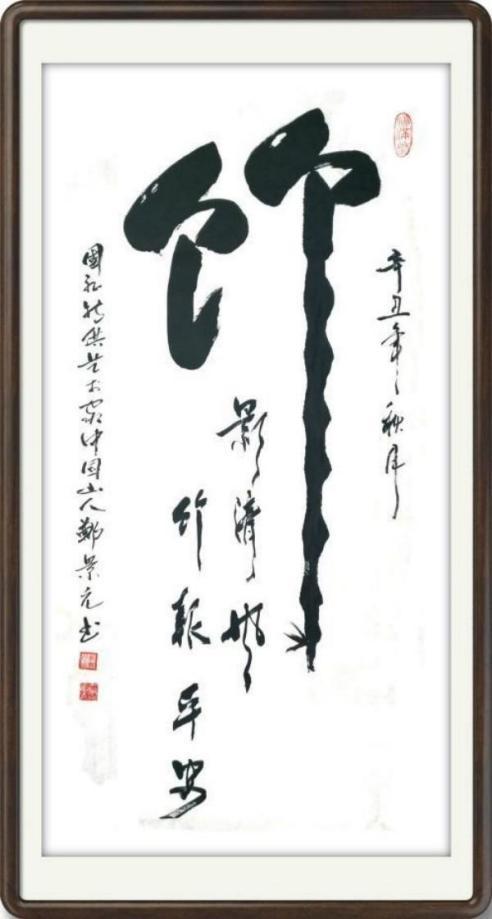 辛丑年秋月
竹
影清风
竹報平安
國礼特供艺术家中国山人鄭景元书